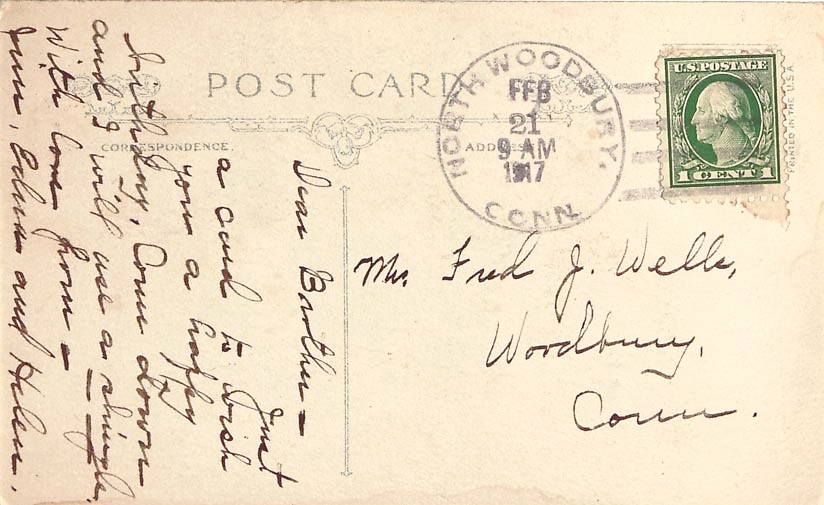 POST CARD
CORRESPONDENCE.
ADDRESS
NORTH WOODBURY,
CONN.
FEB
21
9 AM
1917
U.S. POSTAGE
1 CENT 1
PRINTED IN THE U.S.A
Dear Brother –
Just
a card to wish
you a happy
birthday, Come down
and I will use a shingle.
With love from –
Edna and Helen.
Mr. Fred J. Wells,
Woodbury,
Conn.